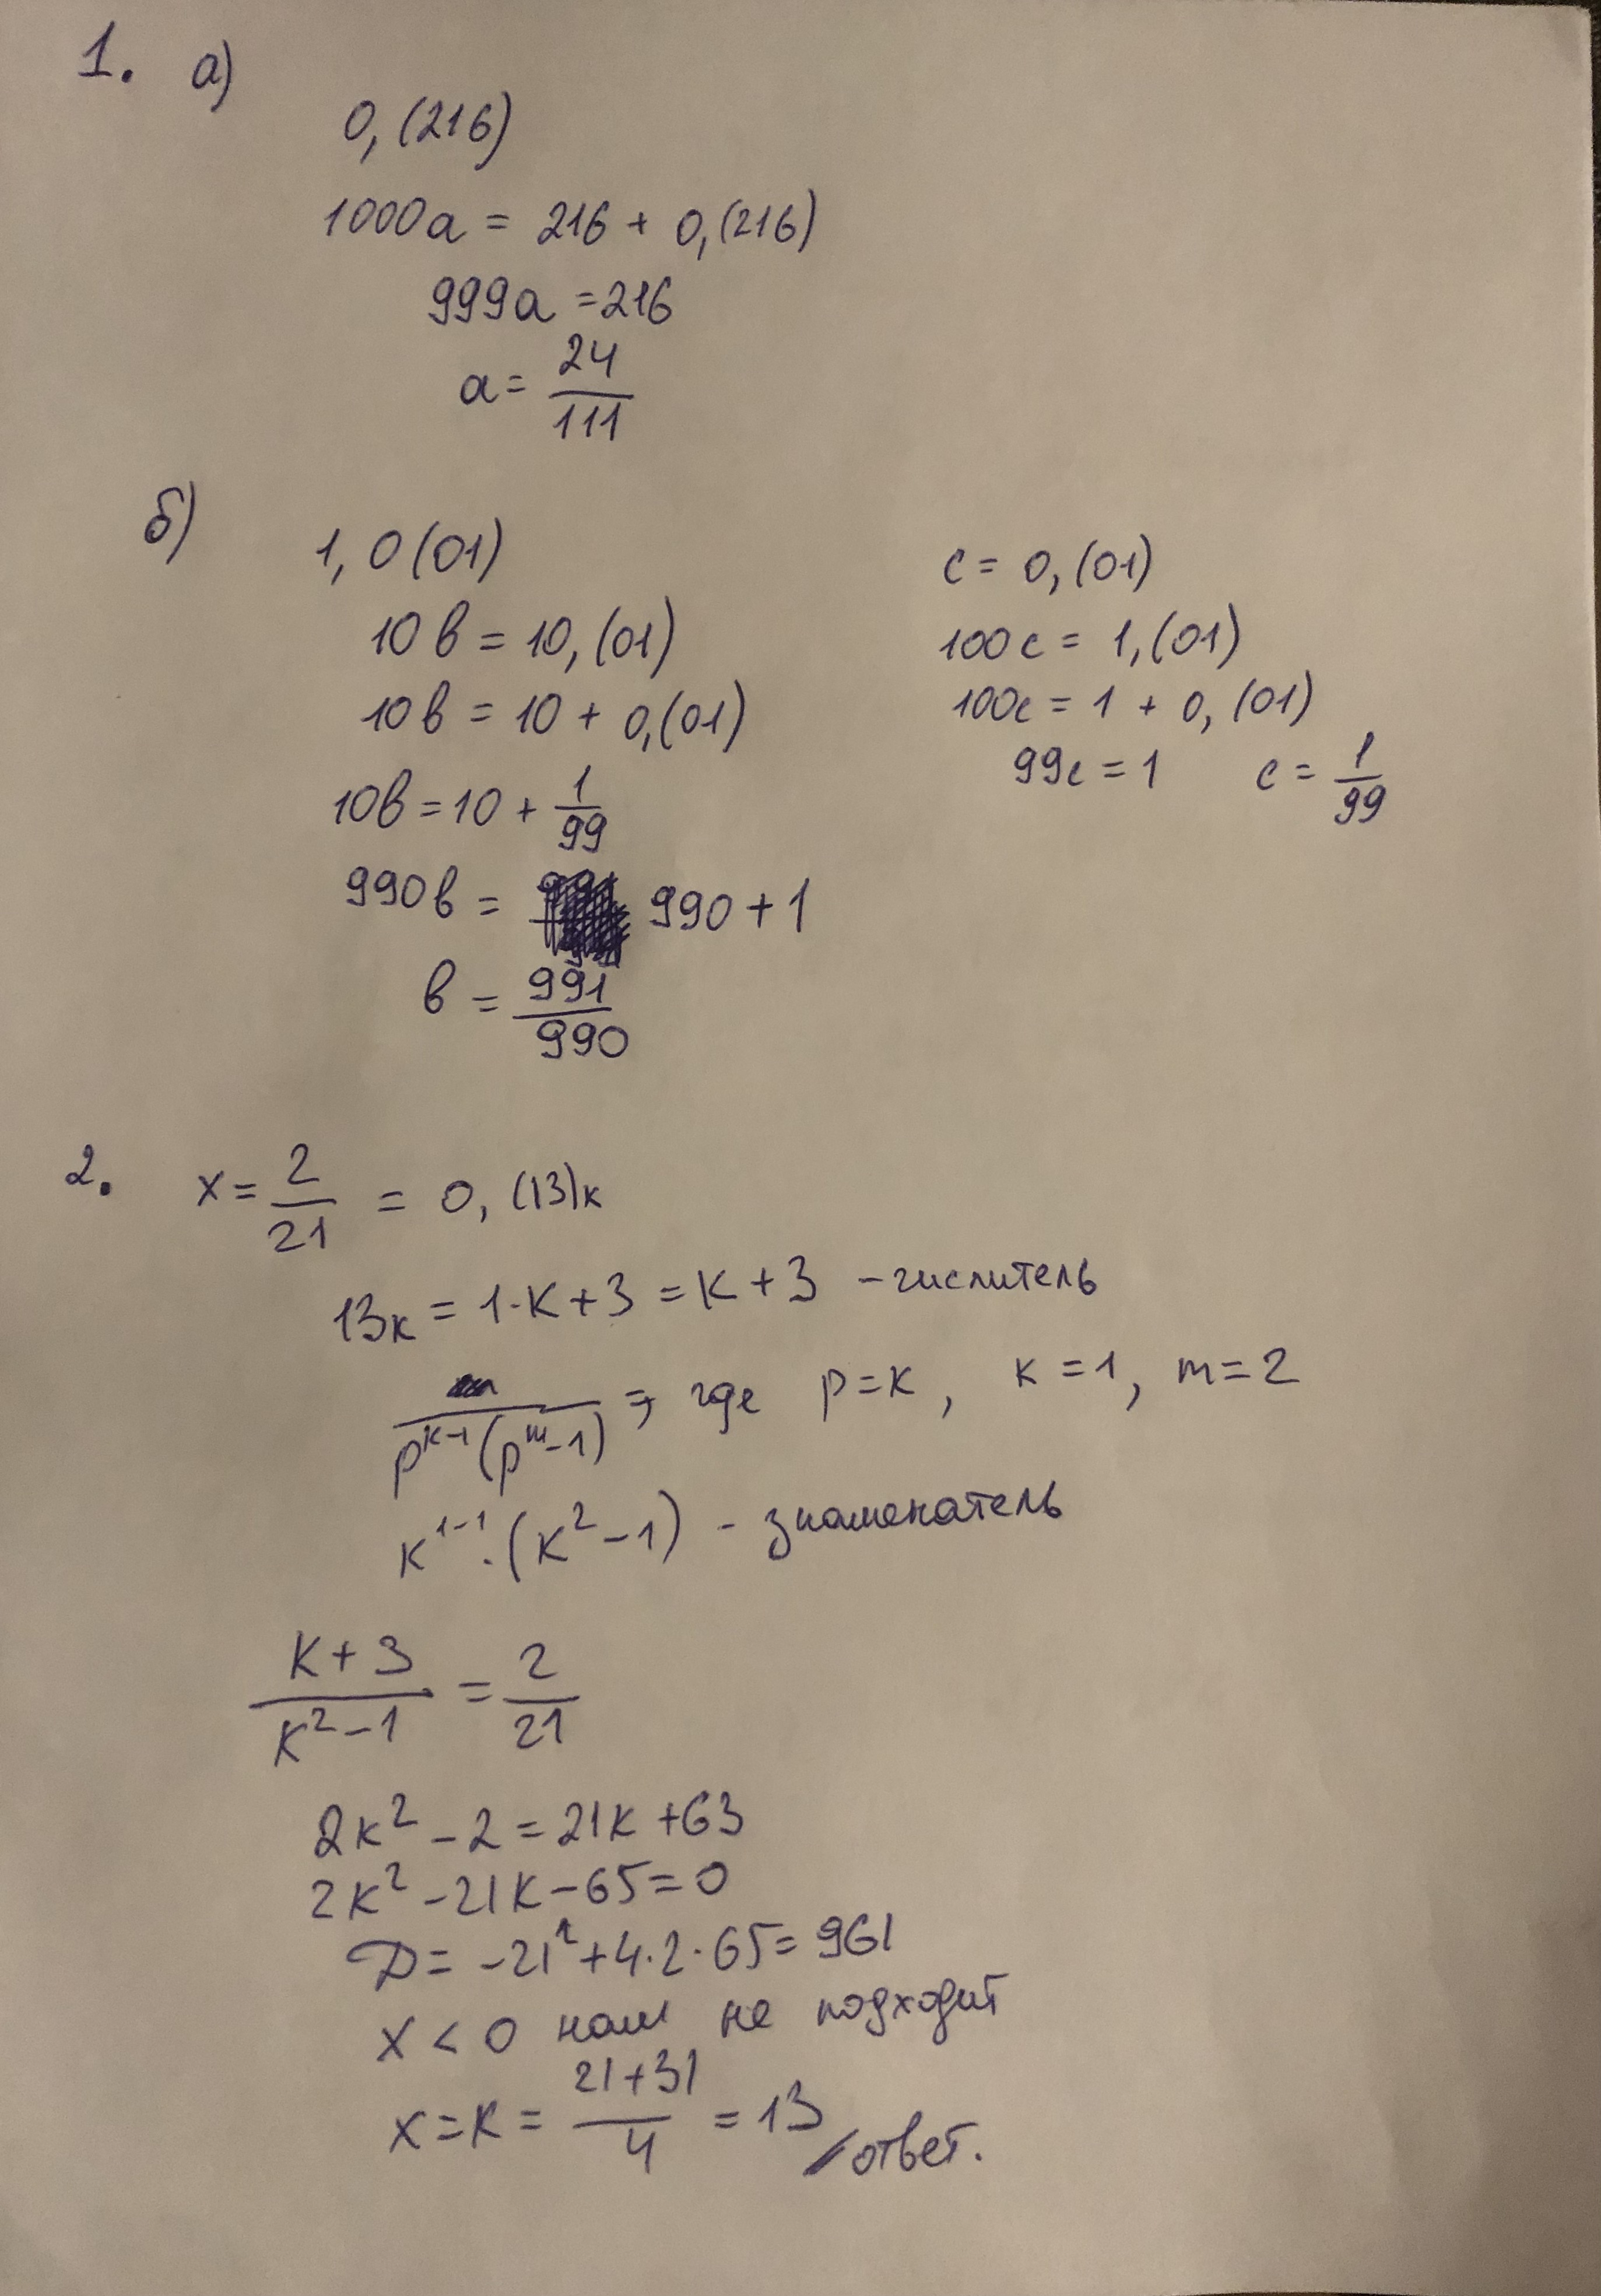 1. а)
0,(216)
1000a = 216 + 0,(216)
999a = 216
a = 24/111
б)
1,0(01)
10b = 10,(01)
10b = 10 + 0,(01)
10b = 10 + 1/99
990b = 990 + 1
b = 991/990
c = 0,(01)
100c = 1,(01)
100c = 1 + 0,(01)
99c = 1 c = 1/99
2. x = 2/21 = 0,(13)к
13к = 1·к + 3 = к + 3 – числитель
p^(к-1)(p^m - 1) => где p = к, к = 1, m = 2
к^(1-1)·(к² - 1) – знаменатель
(к + 3)/(к² - 1) = 2/21
2к² - 2 = 21к + 63
2к² - 21к - 65 = 0
D = -21² + 4·2·65 = 961
x < 0 нам не подходит
x = к = (21 + 31)/4 = 13 / ответ.